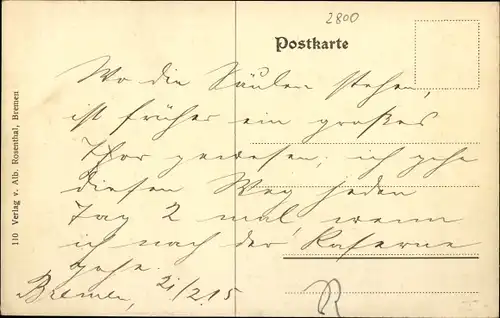 2800
Postkarte
Wo die Säulen stehen,
ist früher ein großes
Thor gewesen; ich gehe
diesen Weg jeden
Tag 2 mal, wenn
ich nach der Kaserne
gehe.
Bremen, 21/2.15
110 Verlag v. Alb. Rosenthal, Bremen